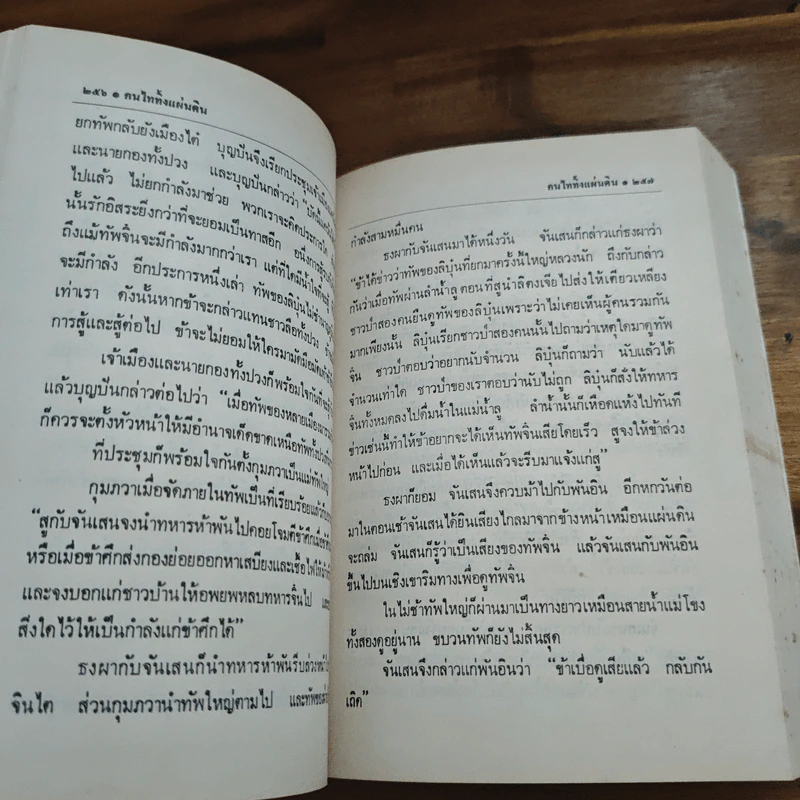 ๒๕๖ ๑ คนไททิ้งแผ่นดิน
ยกทัพกลับยังเมืองไต๋ บุญปันจึงเรียกประชุมเจ้าเมือง
และนายกองทั้งปวง และบุญปันกล่าวว่า
ไปแล้ว ไม่ยกกำลังมาช่วย พวกเราจะคิดประการใด
นั้นรักอิสระยิ่งกว่าที่จะยอมเป็นทาสอีก อนึ่งการ
ถึงแม้ทัพจีนจะมีกำลังมากกว่าเรา แต่ที่ใดมีน้ำใจ
จะมีกำลัง อีกประการหนึ่งเล่า ทัพของลิบุ๋นไม่
เท่าเรา ดังนั้นหากข้าจะกล่าวแทนชาวลือทั้งปวง
การสู้และสู้ต่อไป ข้าจะไม่ยอมให้ใครมามัดมือ
เจ้าเมืองและนายกองทั้งปวงก็พร้อมใจกัน
แล้วบุญปันกล่าวต่อไปว่า “เมื่อทัพของหลายเมือง
ก็ควรจะตั้งหัวหน้าให้มีอำนาจเด็ดขาดเหนือทัพทั้ง
ที่ประชุมก็พร้อมใจกันตั้งกุมภวาเป็นแม่ทัพใหญ่
กุมภวาเมื่อจัดภายในทัพเป็นที่เรียบร้อยแล้ว
“สูกับจันเสนจงนำทหารห้าพันไปคอยโจมตีข้าศึก
หรือเมื่อข้าศึกส่งกองย่อยออกหาเสบียงและเชื้อไฟ
และจงบอกแก่ชาวบ้านให้อพยพหลบทหารจีนไป
สิ่งใดไว้ให้เป็นกำลังแก่ข้าศึกได้”
ธงผากับจันเสนก็นำทหารห้าพันรีบล่วงหน้า
จินไต ส่วนกุมภวานำทัพใหญ่ตามไป และทัพของ
คนไททิ้งแผ่นดิน ๑ ๒๕๗
กำลังสามหมื่นคน
ธงผากับจันเสนมาได้หนึ่งวัน จันเสนก็กล่าวแก่ธงผาว่า
“ข้าได้ข่าวว่าทัพของลิบุ๋นที่ยกมาครั้งนี้ใหญ่หลวงนัก ถึงกับกล่าว
กันว่าเมื่อทัพผ่านลำน้ำลู ตอนที่สูนำลิตงเจียไปส่งให้เตียวเหลียง
ชาวป่าสองคนยืนดูทัพของลิบุ๋นเพราะว่าไม่เคยเห็นผู้คนรวมกัน
มากเพียงนั้น ลิบุ๋นเรียกชาวป่าสองคนนั้นไปถามว่าเหตุใดมาดูทัพ
จีน ชาวป่าตอบว่าอยากนับจำนวน ลิบุ๋นก็ถามว่า นับแล้วได้
จำนวนเท่าใด ชาวป่าของเราตอบว่านับไม่ถูก ลิบุ๋นก็สั่งให้ทหาร
จีนทั้งหมดลงไปดื่มน้ำในแม่น้ำลู ลำน้ำนั้นก็เหือดแห้งไปทันที
ข่าวเช่นนี้ทำให้ข้าอยากจะได้เห็นทัพจีนเสียโดยเร็ว สูจงให้ข้าล่วง
หน้าไปก่อน และเมื่อได้เห็นแล้วจะรีบมาแจ้งแก่สู”
ธงผาก็ยอม จันเสนจึงควบม้าไปกับพันอิน อีกหกวันต่อ
มาในตอนเช้าจันเสนได้ยินเสียงไกลมาจากข้างหน้าเหมือนแผ่นดิน
จะถล่ม จันเสนก็รู้ว่าเป็นเสียงของทัพจีน แล้วจันเสนกับพันอิน
ขึ้นไปบนเชิงเขาริมทางเพื่อดูทัพจีน
ในไม่ช้าทัพใหญ่ก็ผ่านมาเป็นทางยาวเหมือนสายน้ำแม่โขง
ทั้งสองดูอยู่นาน ขบวนทัพก็ยังไม่สิ้นสุด
จันเสนจึงกล่าวแก่พันอินว่า “ข้าเบื่อดูเสียแล้ว กลับกัน
เถิด”